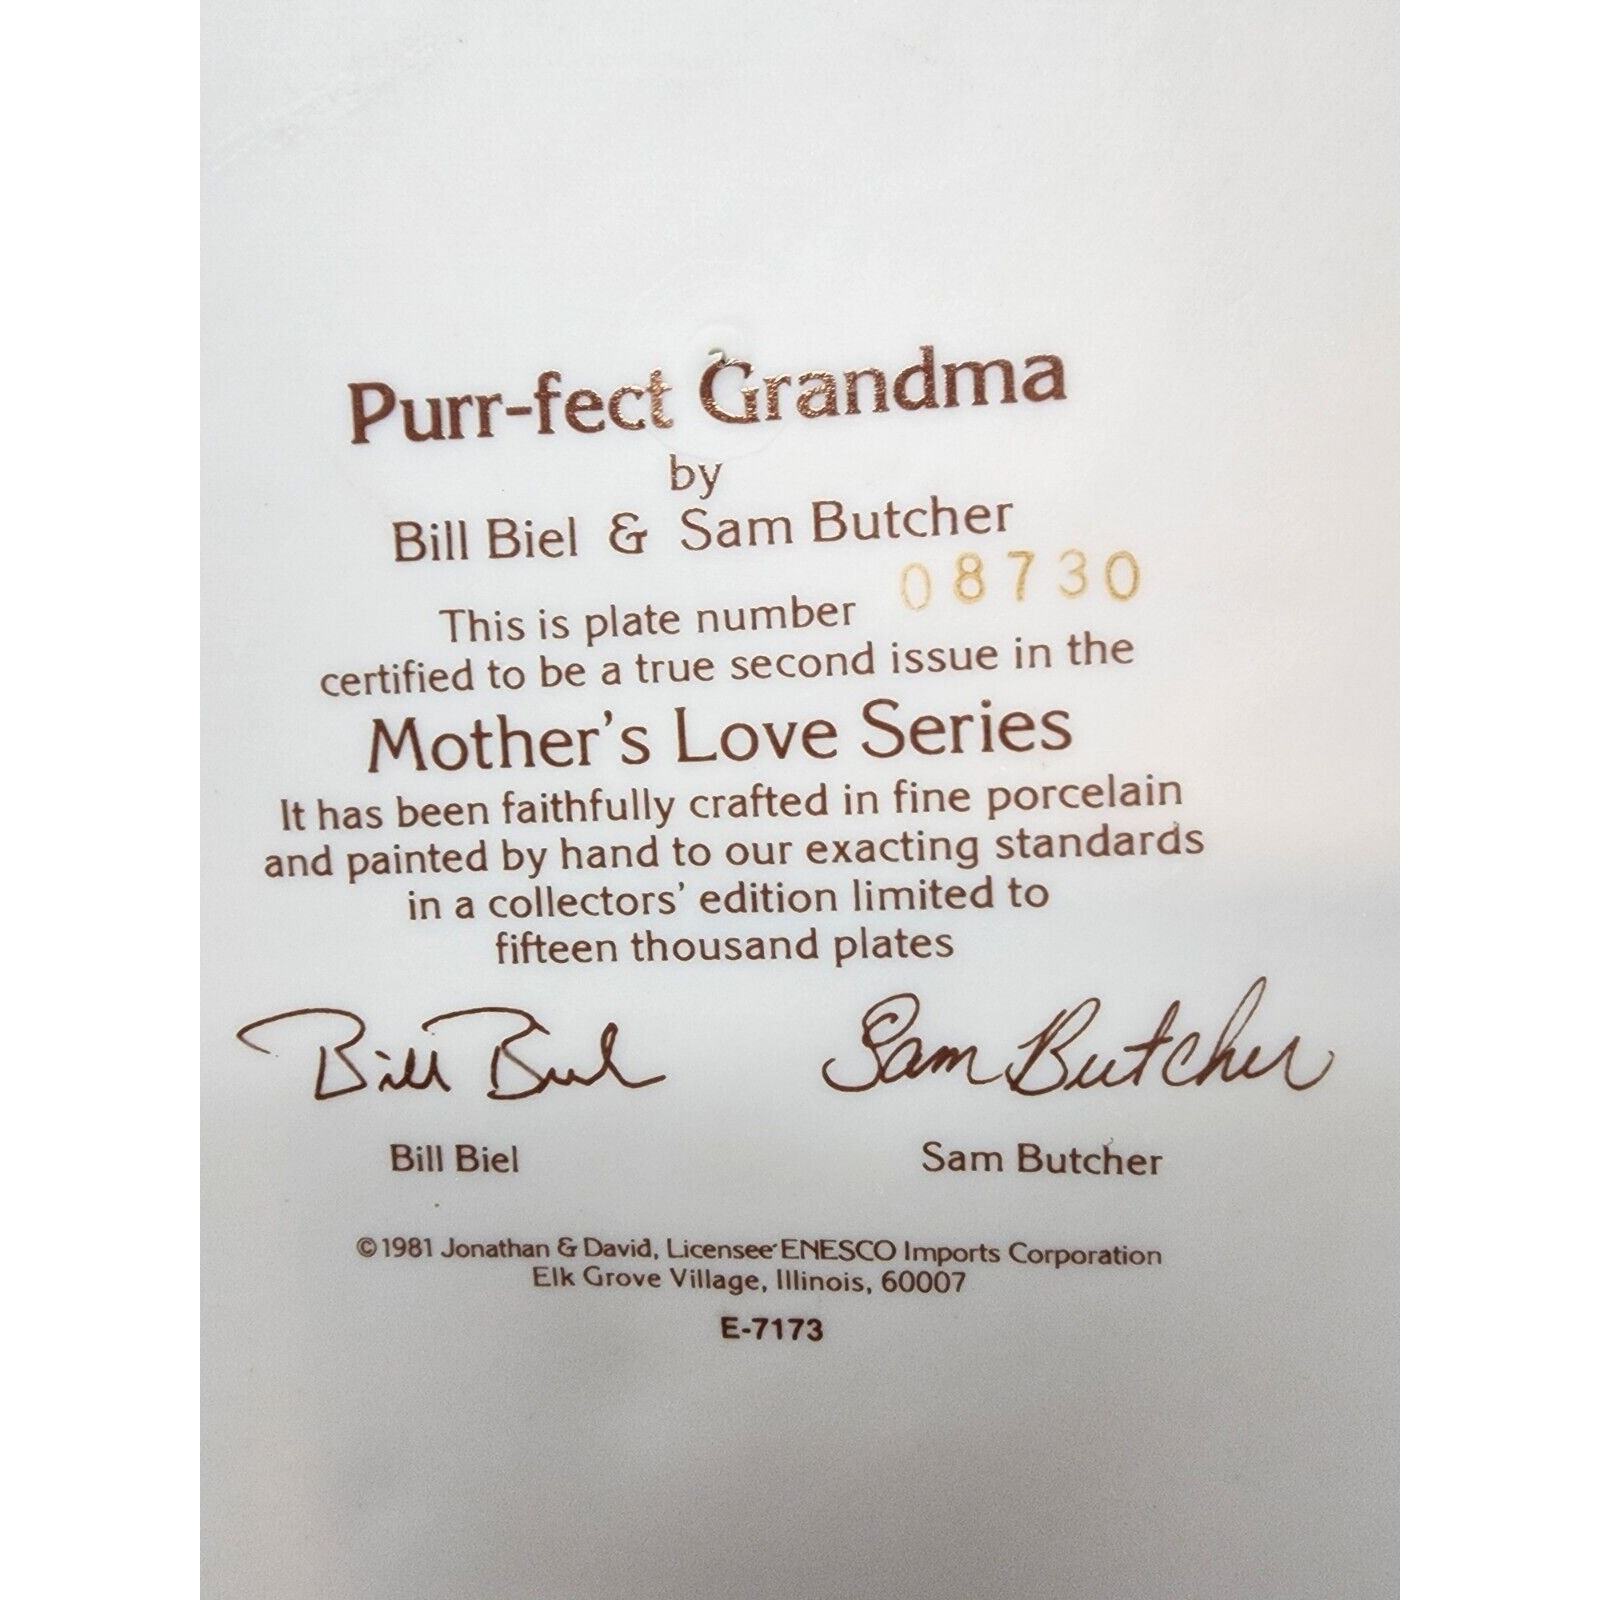 Purr-fect Grandma
by
Bill Biel & Sam Butcher
This is plate number 08730
certified to be a true second issue in the
Mother's Love Series
It has been faithfully crafted in fine porcelain
and painted by hand to our exacting standards
in a collectors' edition limited to
fifteen thousand plates
Bill Biel Sam Butcher
Bill Biel Sam Butcher
©1981 Jonathan & David, Licensee ENESCO Imports Corporation
Elk Grove Village, Illinois, 60007
E-7173